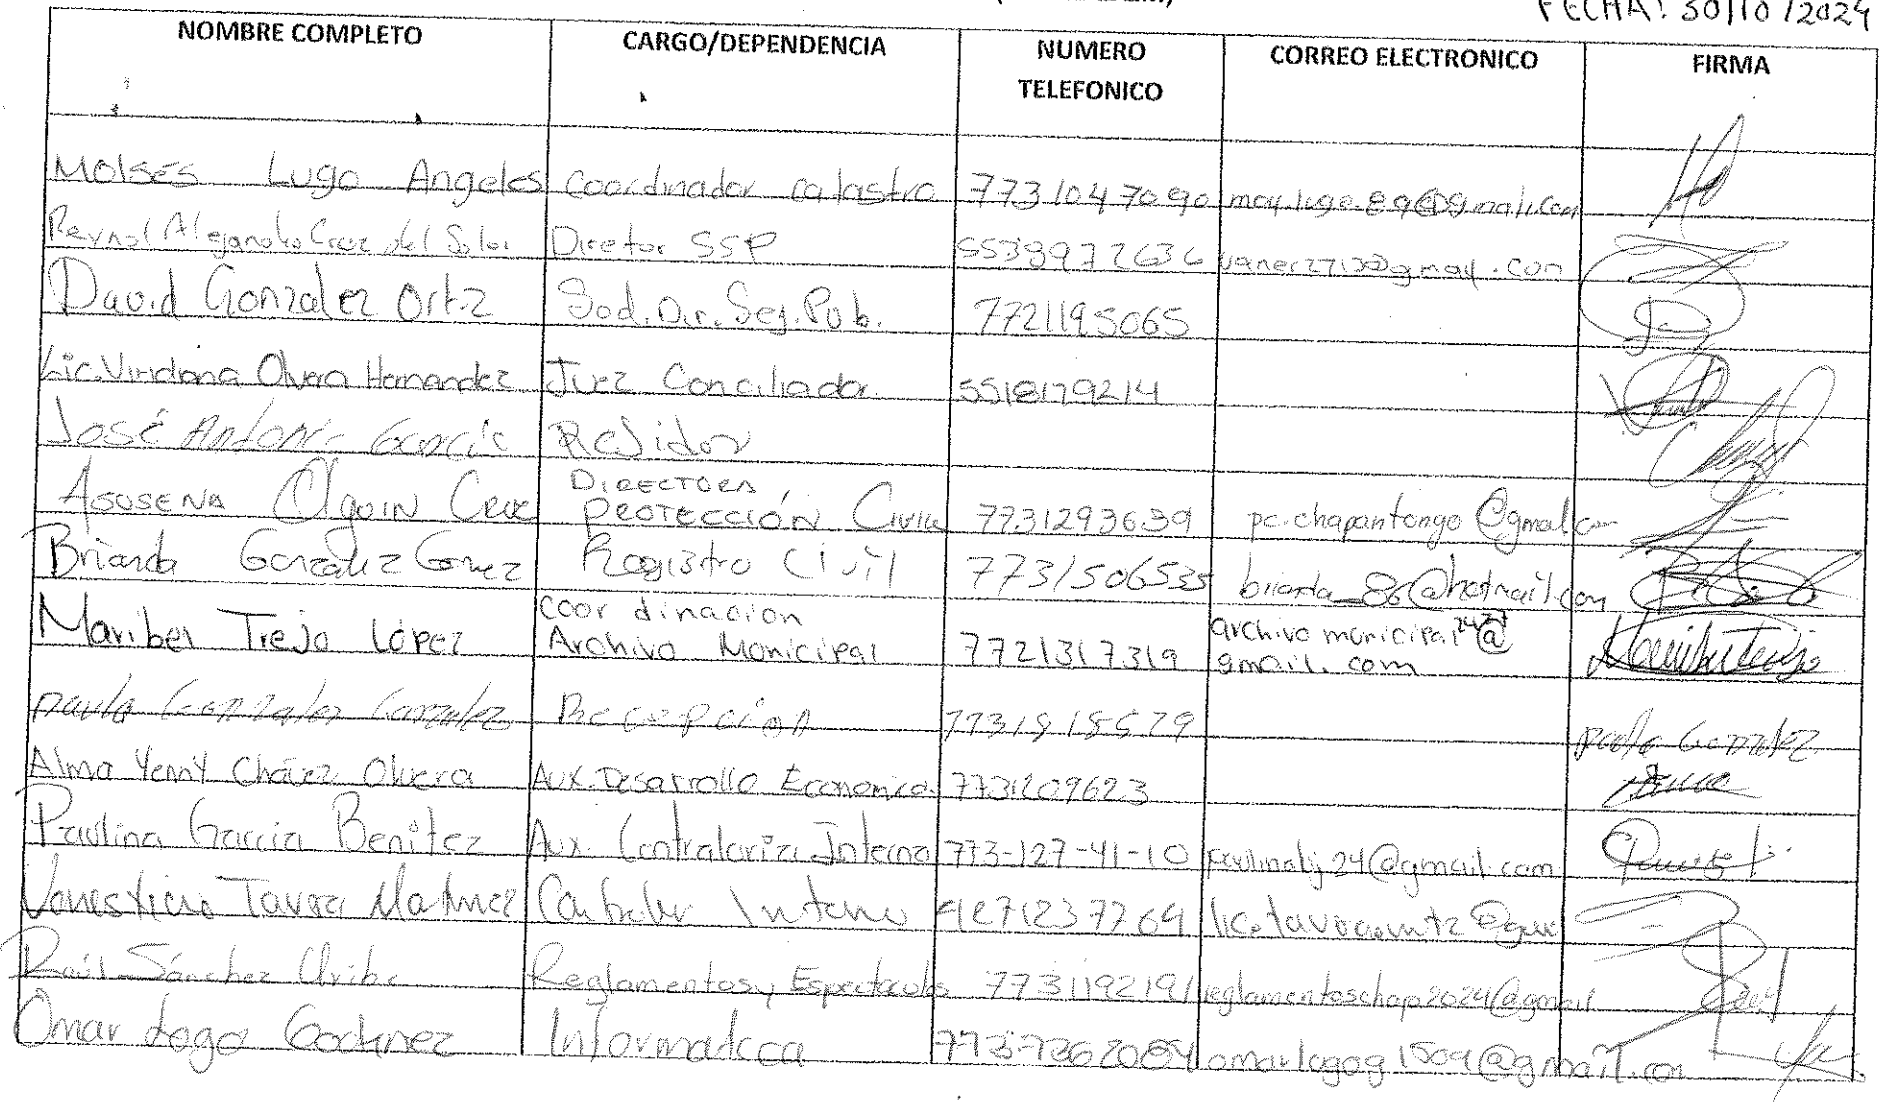 FECHA: 30/10/2024
NOMBRE COMPLETO CARGO/DEPENDENCIA NUMERO TELEFONICO CORREO ELECTRONICO FIRMA
Moisés Lugo Angeles Coordinador catastro 7731047090
Alejandro Cruz del Director SSP 5538972636
David Gonzalez Ortiz Sod. Dir. Seg. Pub. 7721195065
Lic. Viridiana Olvera Hernandez Juez Conciliador 5518179214
José Antonio García Regidor
Asosena Olguin Cruz Directora Protección Civil 7731293639 pc.chapantongo@gmail.c
Brianda González Gomez Registro Civil 7731506535 brianda_86@hotmail.com
Maribel Trejo López Coordinacion Archivo Municipal 7721317319 archivo municipal2427@gmail.com Maribel Trejo
paula Gonzalez Gonzalez Recepción paula Gonzalez
Alma Yenny Chávez Olvera Aux. Desarrollo Economico. 7731209623
Paulina García Benitez Aux. Contraloria Interna 773-127-41-10 paulinabj24@gmail.com
Tavera Martinez Contralor Interno 4271237769
Raúl Sánchez Uribe Reglamentos y Espectaculos 7731192191 reglamentoschap2024@gmail
Omar Lugo Godinez Informatica 7737362084 omarlugog1509@gmail.com